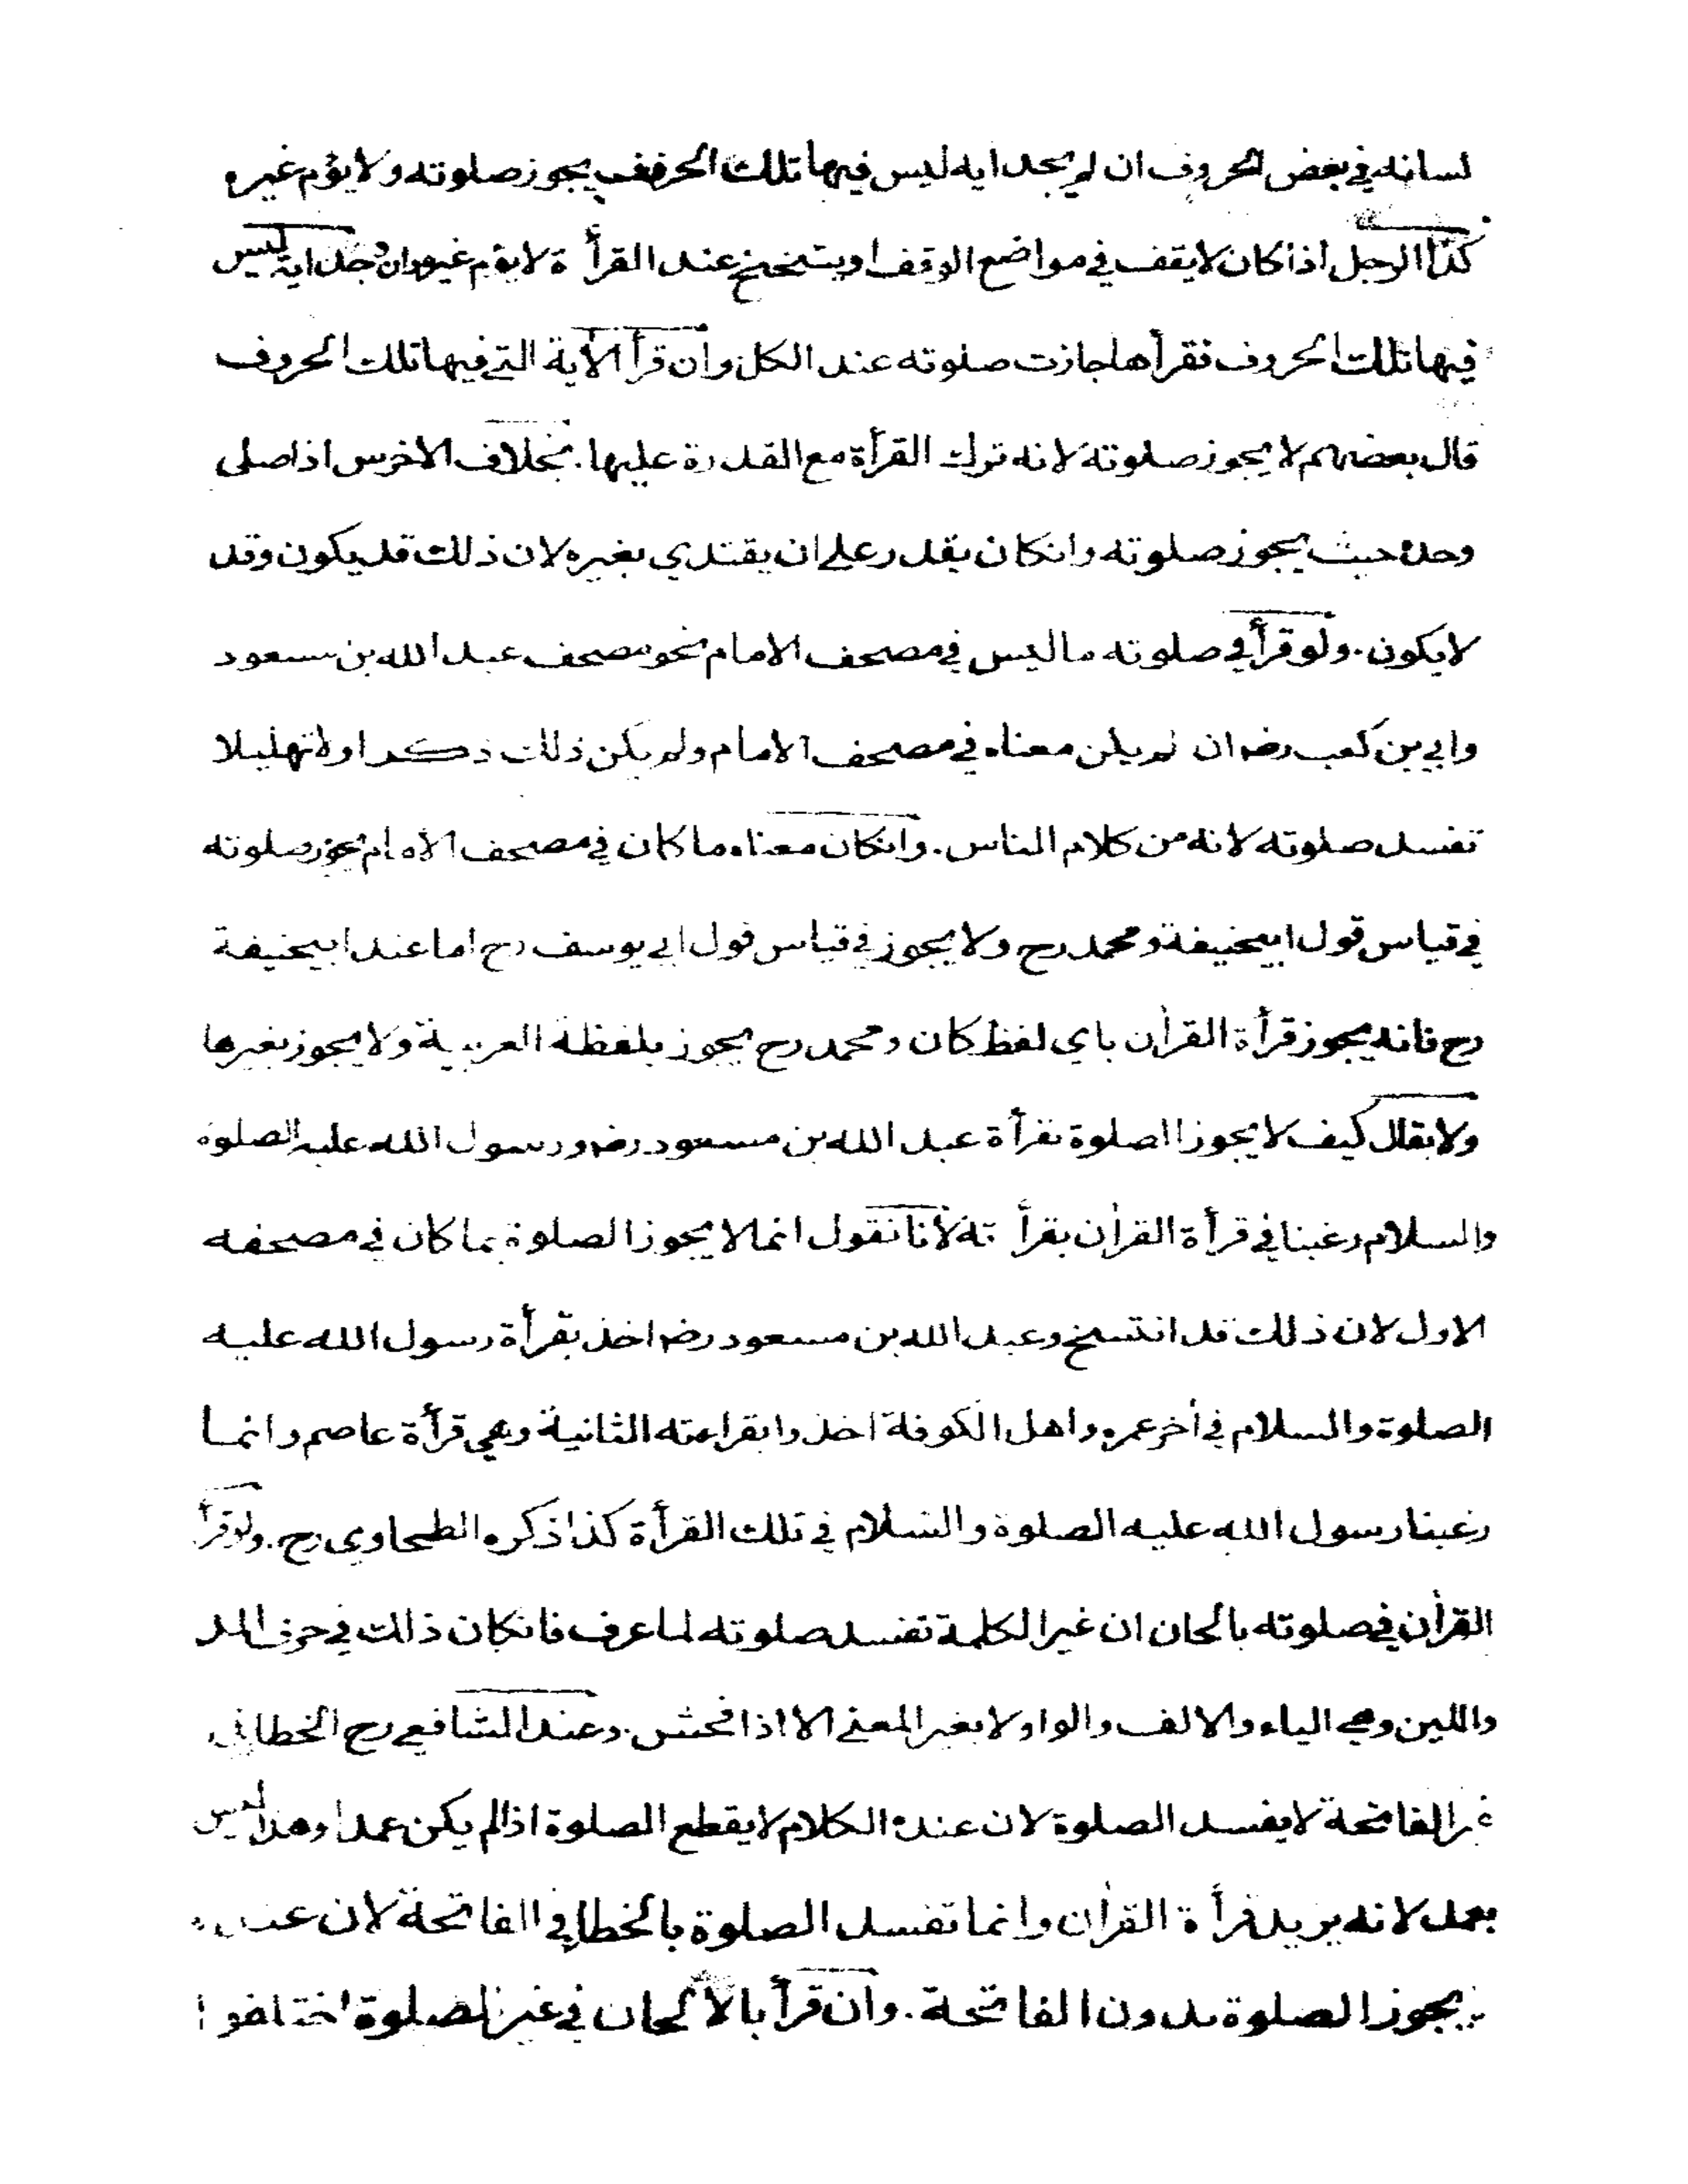 لسانه في بعض الحروف ان لم يجد اية ليس فيها تلك الحروف يجوز صلوته ولا يؤم غيره
كذا الرجل اذا كان لا يقف في مواضع الوقف او يتنحنح عند القرأة لا يؤم غيره وان وجد اية ليس
فيها تلك الحروف فقرأها جازت صلوته عند الكل وان قرأ الآية التي فيها تلك الحروف
قال بعضهم لا يجوز صلوته لانه ترك القرأة مع القدرة عليها. بخلاف الاخرس اذا صلى
وحده حيث يجوز صلوته وانكان يقدر على ان يقتدي بغيره لان ذلك قد يكون وقد
لا يكون. ولو قرأ في صلوته ما ليس في مصحف الامام نحو مصحف عبد الله بن مسعود
وابي بن كعب رضه ان لم يكن معناه في مصحف الامام ولم يكن ذلك ذكرا ولا تهليلا
تفسد صلوته لانه من كلام الناس. وانكان معناه ما كان في مصحف الامام يجوز صلوته
في قياس قول ابيحنيفة ومحمد رح ولا يجوز في قياس قول ابي يوسف رح اما عند ابيحنيفة
رح فانه يجوز قرأة القرأن باي لفظ كان ومحمد رح يجوز بلفظة العربية ولا يجوز بغيرها
ولا يقال كيف لا يجوز الصلوة بقرأة عبد الله بن مسعود رضه ورسول الله عليه الصلوة
والسلام رغبنا في قرأة القرأن بقرأته لأنا نقول انما لا يجوز الصلوة بما كان في مصحفه
الاول لان ذلك قد انتسخ وعبد الله بن مسعود رضه اخذ بقرأة رسول الله عليه
الصلوة والسلام في أخر عمره واهل الكوفة اخذوا بقراءته الثانية وهي قرأة عاصم وانما
رغبنا رسول الله عليه الصلوة والسلام في تلك القرأة كذا ذكره الطحاوي رح. ولو قرأ
القرأن في صلوته بالحان ان غير الكلمة تفسد صلوته لما عرف فانكان ذلك في حرف المد
واللين وهي الياء والالف والواو لا يغير المعنى الا اذا فحش. وعند الشافعي رح الخطا في
غير الفاتحة لا يفسد الصلوة لان عنده الكلام لا يقطع الصلوة اذا لم يكن عمدا وهذا ليس
بعمد لانه يريد قرأة القرأن وانما تفسد الصلوة بالخطا في الفاتحة لان عنده
يجوز الصلوة بدون الفاتحة. وان قرأ بالألحان في غير الصلوة اختلفوا